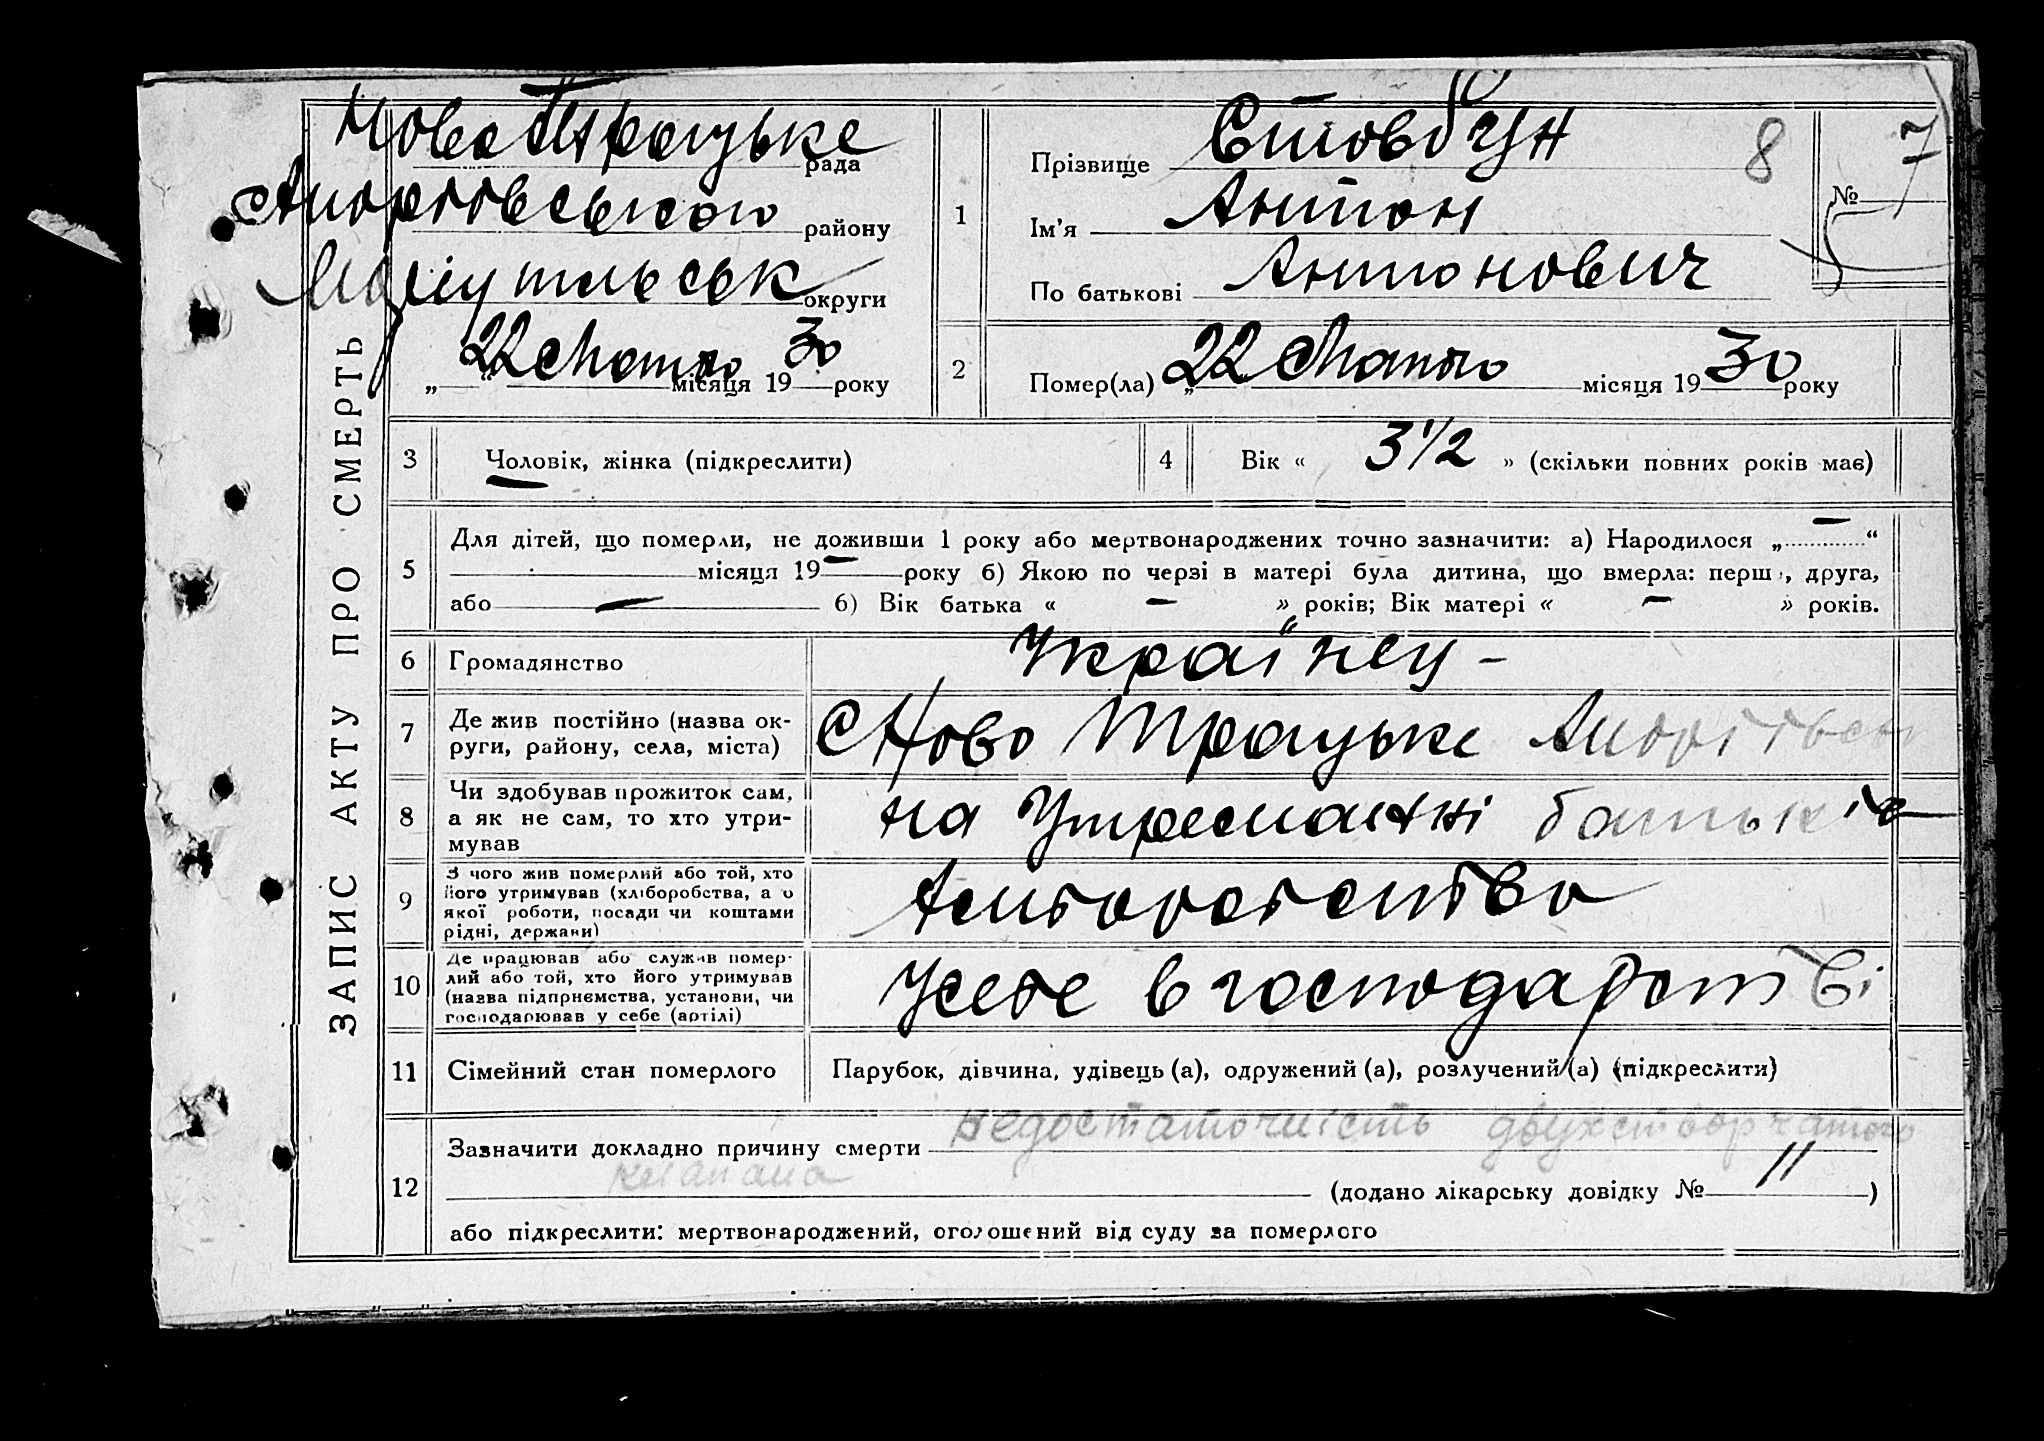 ЗАПИС АКТУ ПРО СМЕРТЬ
Ново Троуцьке рада
району
округи
„22“ Лютого місяця 1930 року
1 Прізвище Стовбун 8
Ім'я Антон
По батькові Антонович
№ 7
2 Помер(ла) „22 Лютого місяця 1930 року
3 Чоловік, жінка (підкреслити)
4 Вік « 3 1/2 » (скільки повних років має)
5 Для дітей, що померли, не доживши 1 року або мертвонароджених точно зазначити: а) Народилося „ — “
місяця 19 — року б) Якою по черзі в матері була дитина, що вмерла: перша, друга,
або — б) Вік батька « — » років; Вік матері « — » років.
6 Громадянство Украінец -
7 Де жив постійно (назва округи, району, села, міста) с Ново Троуцьке
8 Чи здобував прожиток сам, а як не сам, то хто утримував на Утреманні батьків
9 З чого жив померлий або той, хто його утримував (хліборобства, а о якої роботи, посади чи коштами рідні, держави)
10 Де працював або служив померлий або той, хто його утримував (назва підприємства, установи, чи господарював у себе (артілі) У себе в господарстві
11 Сімейний стан померлого Парубок, дівчина, удівець (а), одружений (а), розлучений (а) (підкреслити)
12 Зазначити докладно причину смерти недостаточність двухстворчатого
клапана (додано лікарську довідку № 11 )
або підкреслити: мертвонароджений, оголошений від суду за померлого